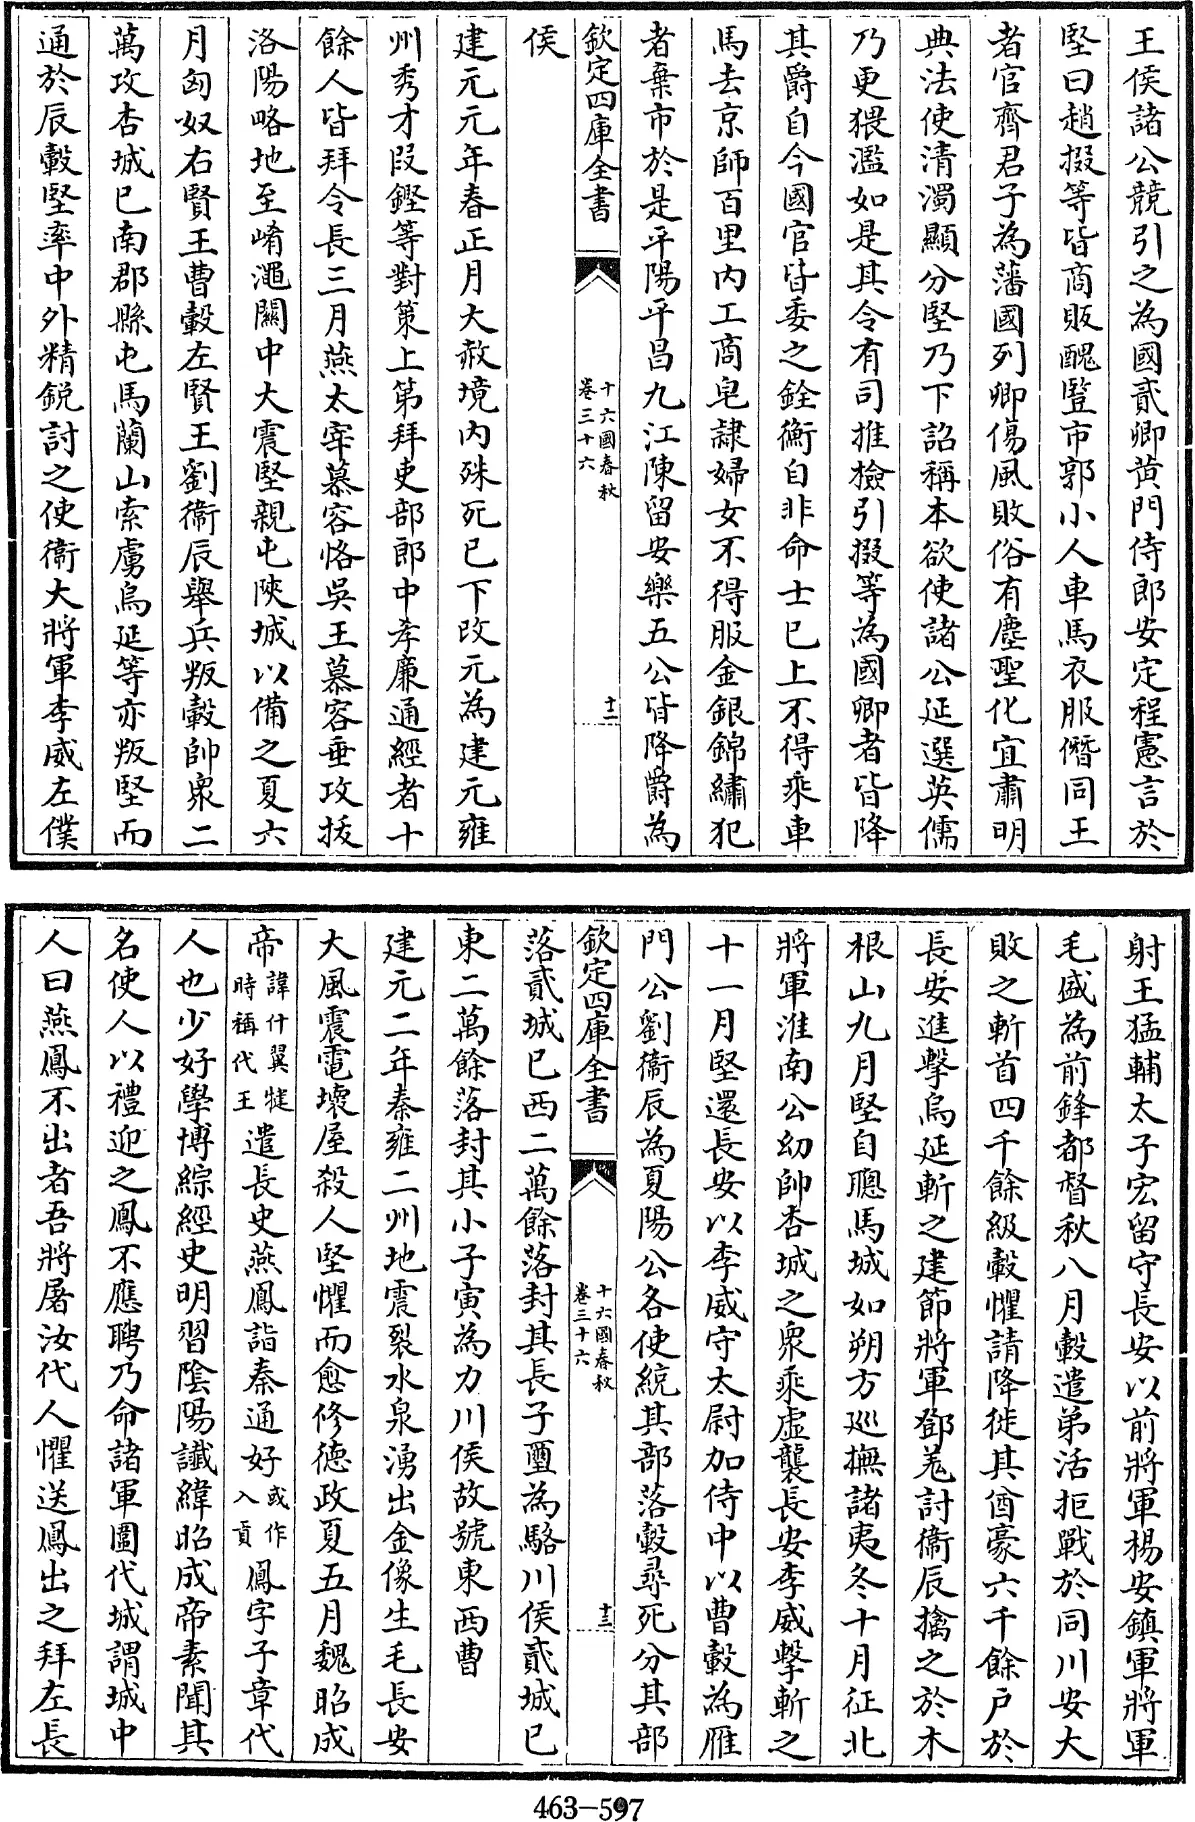 王侯諸公競引之為國貳卿黃門侍郎安定程憲言於
堅曰趙掇等皆商販醜豎市郭小人車馬衣服僭同王
者官齊君子為藩國列卿傷風敗俗有塵聖化宜肅明
典法使清濁顯分堅乃下詔稱本欲使諸公延選英儒
乃更猥濫如是其令有司推檢引掇等為國卿者皆降
其爵自今國官皆委之銓衡自非命士已上不得乘車
馬去京師百里內工商皂隸婦女不得服金銀錦繡犯
者棄市於是平陽平昌九江陳留安樂五公皆降爵為
欽定四庫全書
十六國春秋
卷三十六
十二
侯
建元元年春正月大赦境內殊死已下改元為建元雍
州秀才段鏗等對策上第拜吏部郎中孝廉通經者十
餘人皆拜令長三月燕太宰慕容恪吳王慕容垂攻拔
洛陽略地至崤澠關中大震堅親屯陝城以備之夏六
月匈奴右賢王曹轂左賢王劉衞辰舉兵叛轂帥衆二
萬攻杏城已南郡縣屯馬蘭山索虜烏延等亦叛堅而
通於辰轂堅率中外精銳討之使衞大將軍李威左僕
射王猛輔太子宏留守長安以前將軍楊安鎮軍將軍
毛盛為前鋒都督秋八月轂遣弟活拒戰於同川安大
敗之斬首四千餘級轂懼請降徙其酋豪六千餘户於
長安進擊烏延斬之建節將軍鄧羌討衞辰擒之於木
根山九月堅自驄馬城如朔方巡撫諸夷冬十月征北
將軍淮南公幼帥杏城之衆乘虛襲長安李威擊斬之
十一月堅還長安以李威守太尉加侍中以曹轂為雁
門公劉衞辰為夏陽公各使統其部落轂尋死分其部
欽定四庫全書
十六國春秋
卷三十六
十三
落貳城已西二萬餘落封其長子璽為駱川侯貳城已
東二萬餘落封其小子寅為力川侯故號東西曹
建元二年秦雍二州地震裂水泉湧出金像生毛長安
大風震電壞屋殺人堅懼而愈修德政夏五月魏昭成
帝諱什翼犍時稱代王遣長史燕鳳詣秦通好或作入貢鳳字子章代
人也少好學博綜經史明習陰陽讖緯昭成帝素聞其
名使人以禮迎之鳳不應聘乃命諸軍圍代城謂城中
人曰燕鳳不出者吾將屠汝代人懼送鳳出之拜左長
463-597